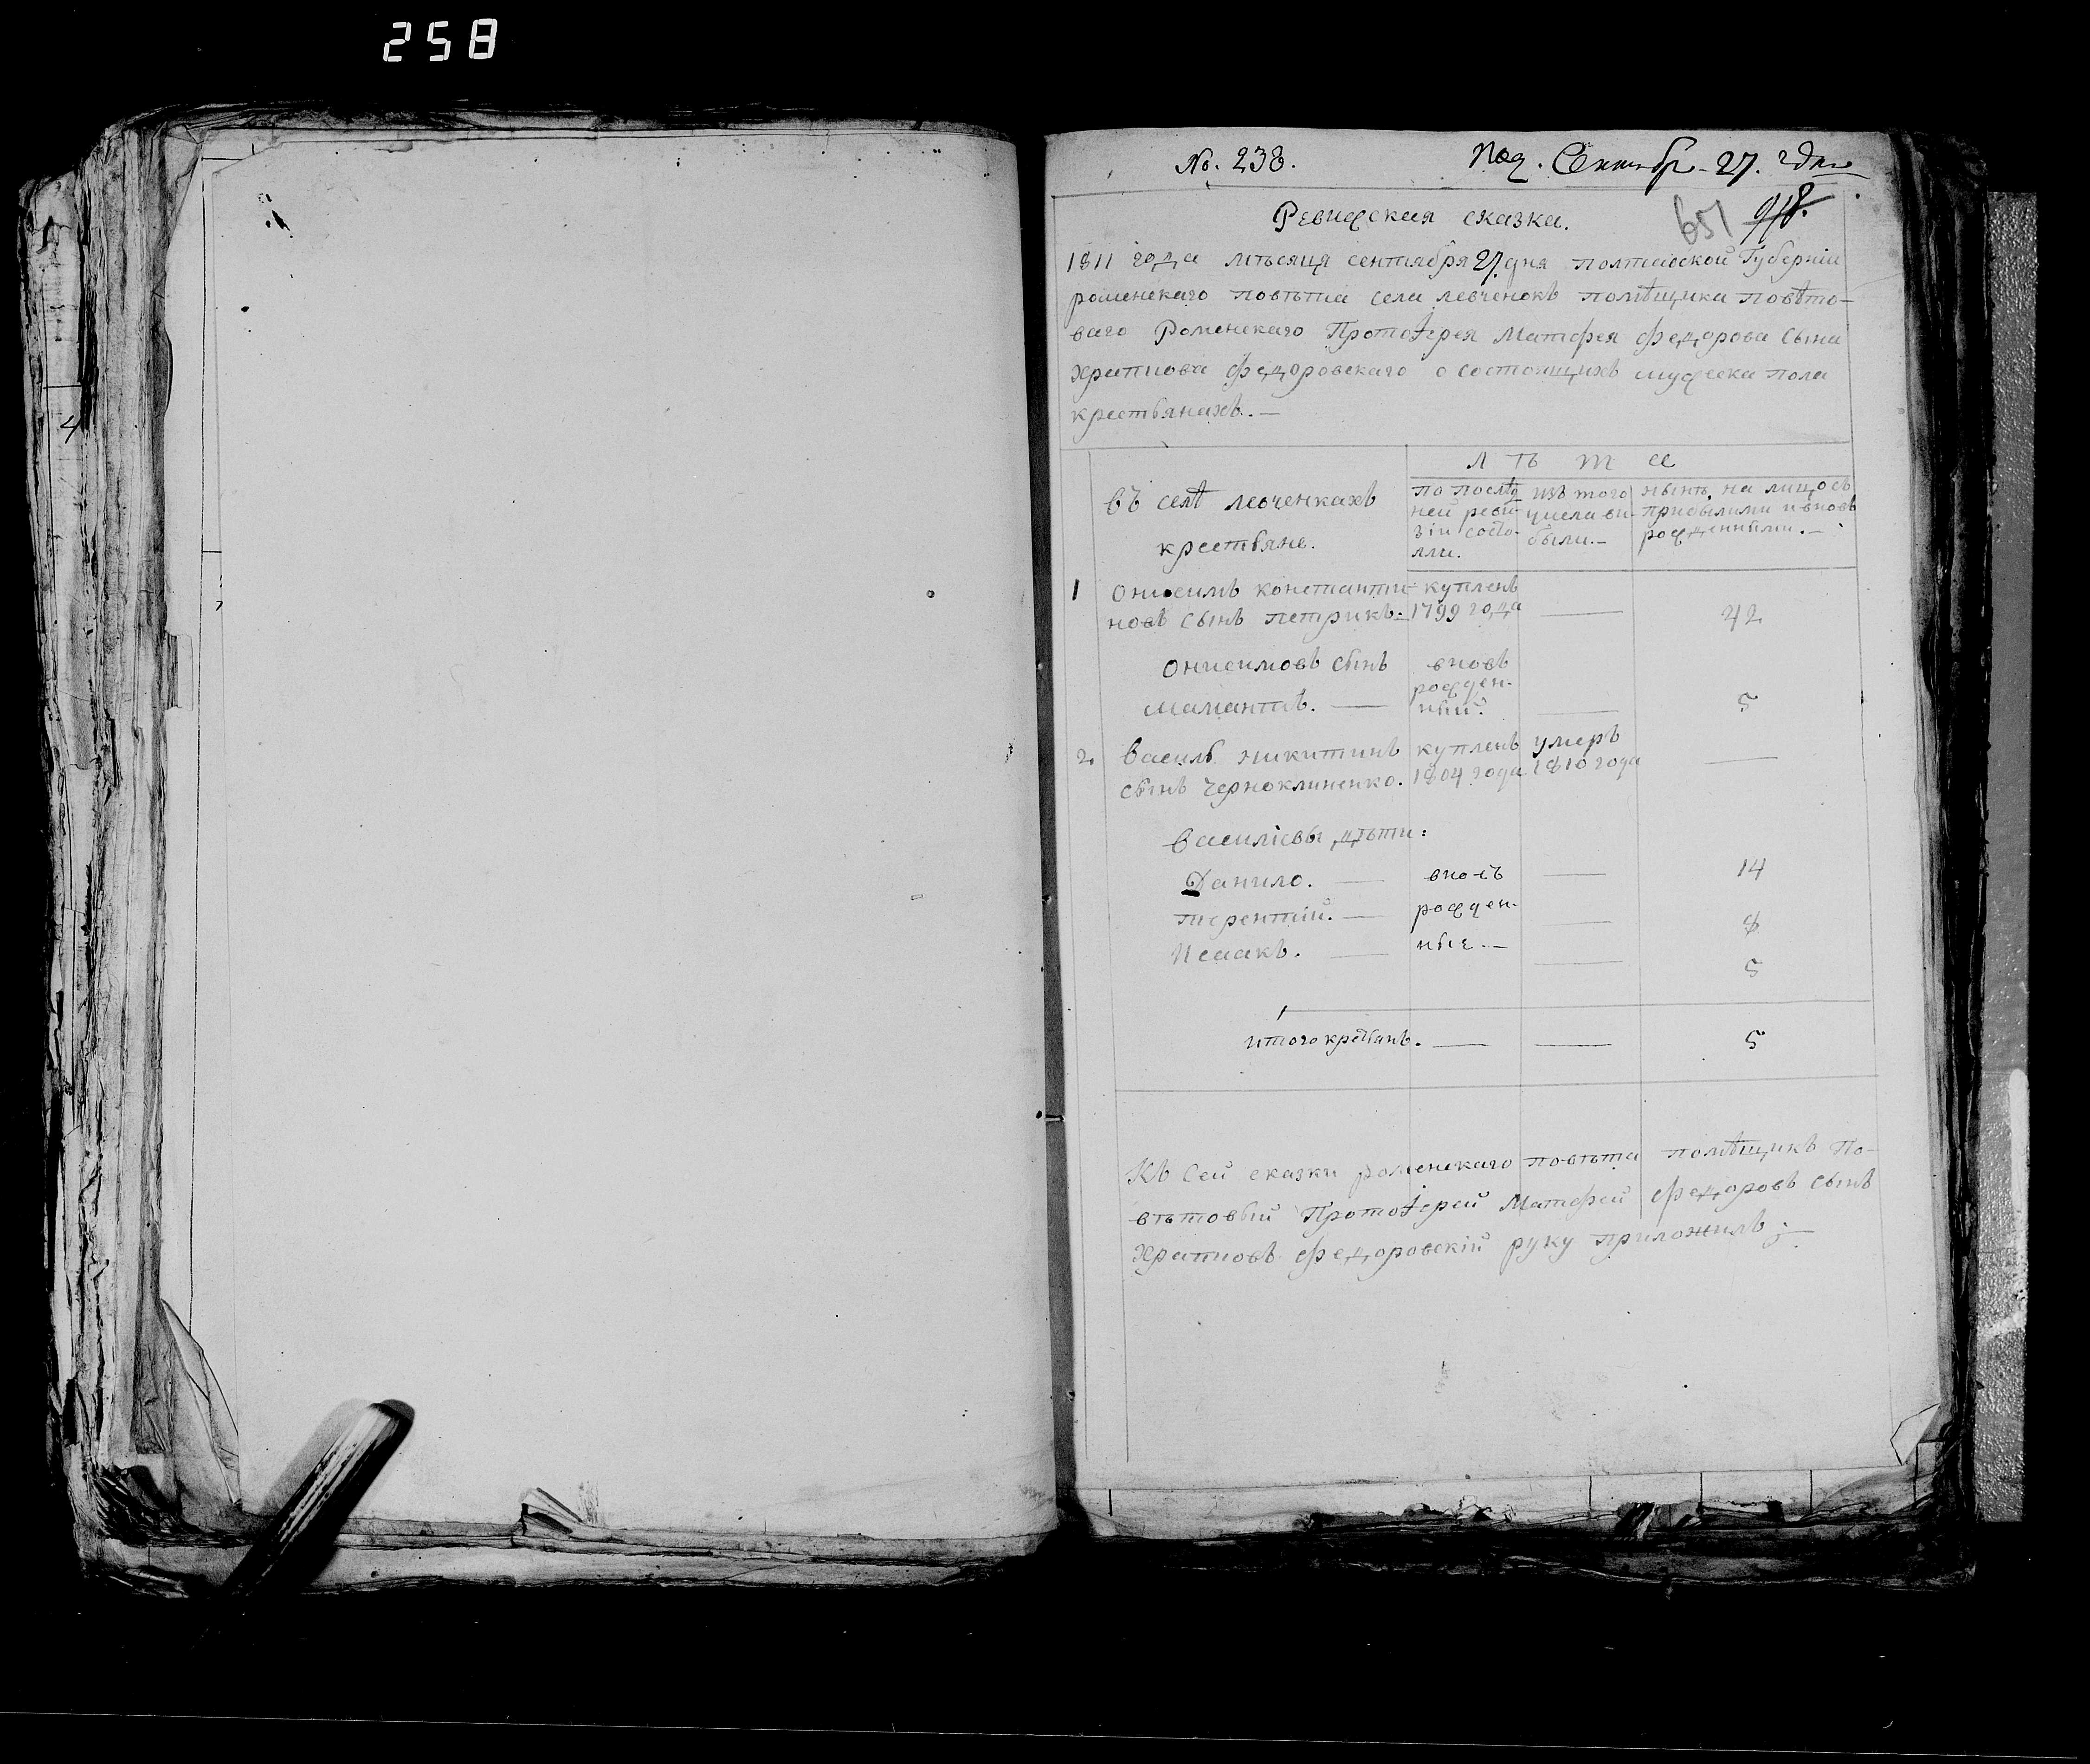 258
4
No. 238.
Под. Сентябр. 27. дня
651 918.
Ревижская сказка.
1811 года мѣсяца сентября 27. дня полтавской Губерніи
роменскаго повѣта села левченокъ помѣщика повѣто-
ваго Роменскаго Протоіерея Матфея федорова сына
Храпнова федоровскаго о состоящихъ мужеска пола
крестьянахъ. —
въ селѣ левченкахъ
крестьяне.
лѣта
по послѣд
ней реви-
зіи состо-
яли.
изъ того
числа вы-
были. —
нынѣ на лицо съ
прибылыми и вновь
рожденными. —
1 Онисимъ константи- купленъ
новъ сынъ петрикъ. 1799 года — 42
Онисимовъ сынъ вновь
рожден-
мамантъ. — ный. — 5
2 василь никитинъ купленъ умеръ
сынъ черноклиненко. 1804 года 1810 года —
василіевы дѣти:
Данило. — вновь — 14
терентій. — рожден- — 8
Исаакъ. — ные. — — 5
итого крестьянъ. — — 5
Къ Сей сказки роменскаго повѣта помѣщикъ По-
вѣтовый Протоіерей Матфей федоровъ сынъ
Храпновъ федоровскій руку приложилъ ;—